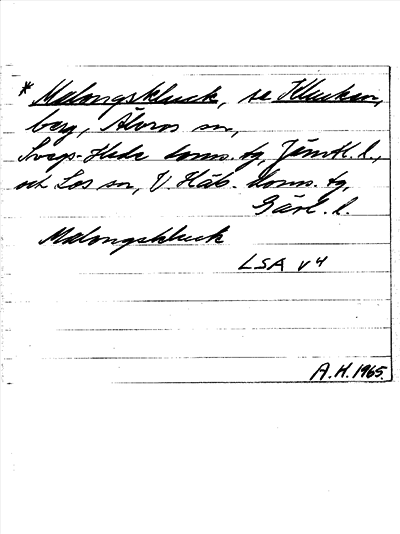 * Malungskluck, se Klucken,
berg, Älvros sn,
Svegs-Hede doms. tg, Jämtl. l.,
och Los sn, V. Häls. doms. tg,
Gävl. l.
Malungskluck
LSA V 4
A. H. 1965.